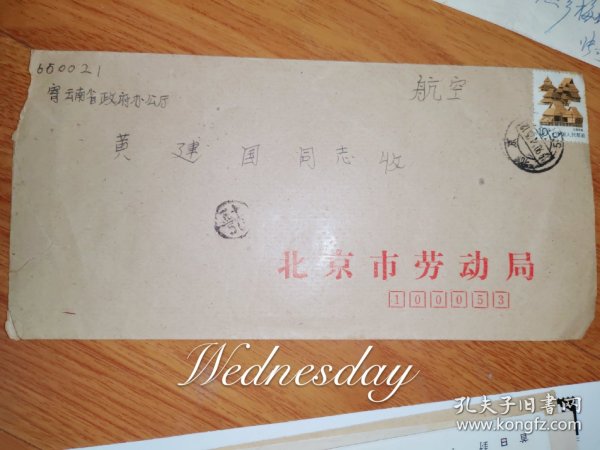 650021
寄云南省政府办公厅
航空
黄建国同志收
北京市劳动局
100053
Wednesday
孔夫子旧书网
www.kongfz.com